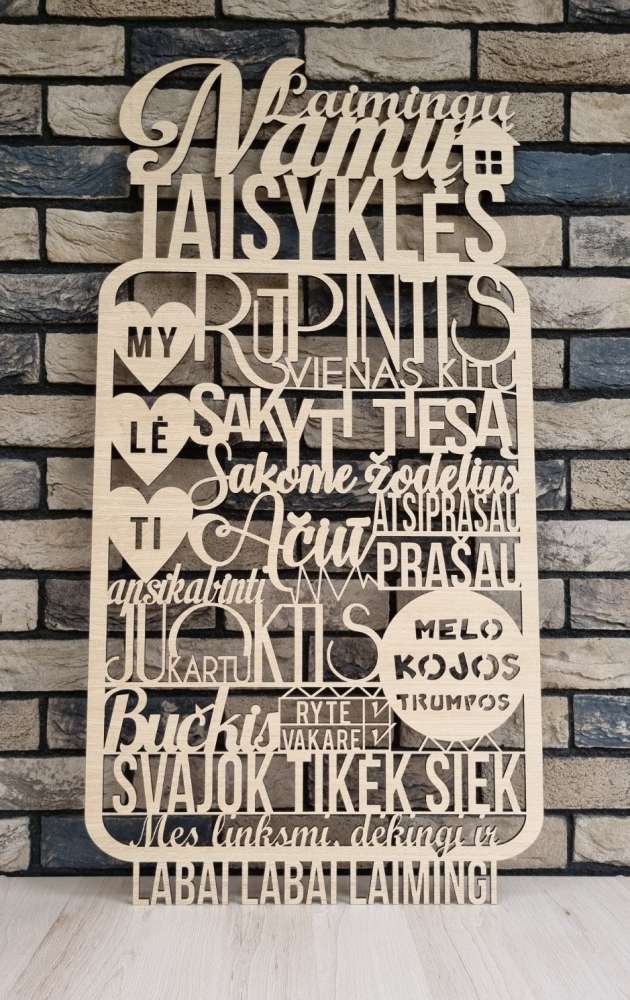 Laimingų
Namų
TAISYKLĖS
MY
LĖ
TI
RŪPINTIS
VIENAS KITU
SAKYTI TIESĄ
Sakome žodelius
Ačiū
ATSIPRAŠAU
PRAŠAU
apsikabinti
JUOKTIS
KARTU
MELO
KOJOS
TRUMPOS
Bučkis
RYTE V
VAKARE V
SVAJOK TIKĖK SIEK
Mes linksmi, dėkingi ir
LABAI LABAI LAIMINGI